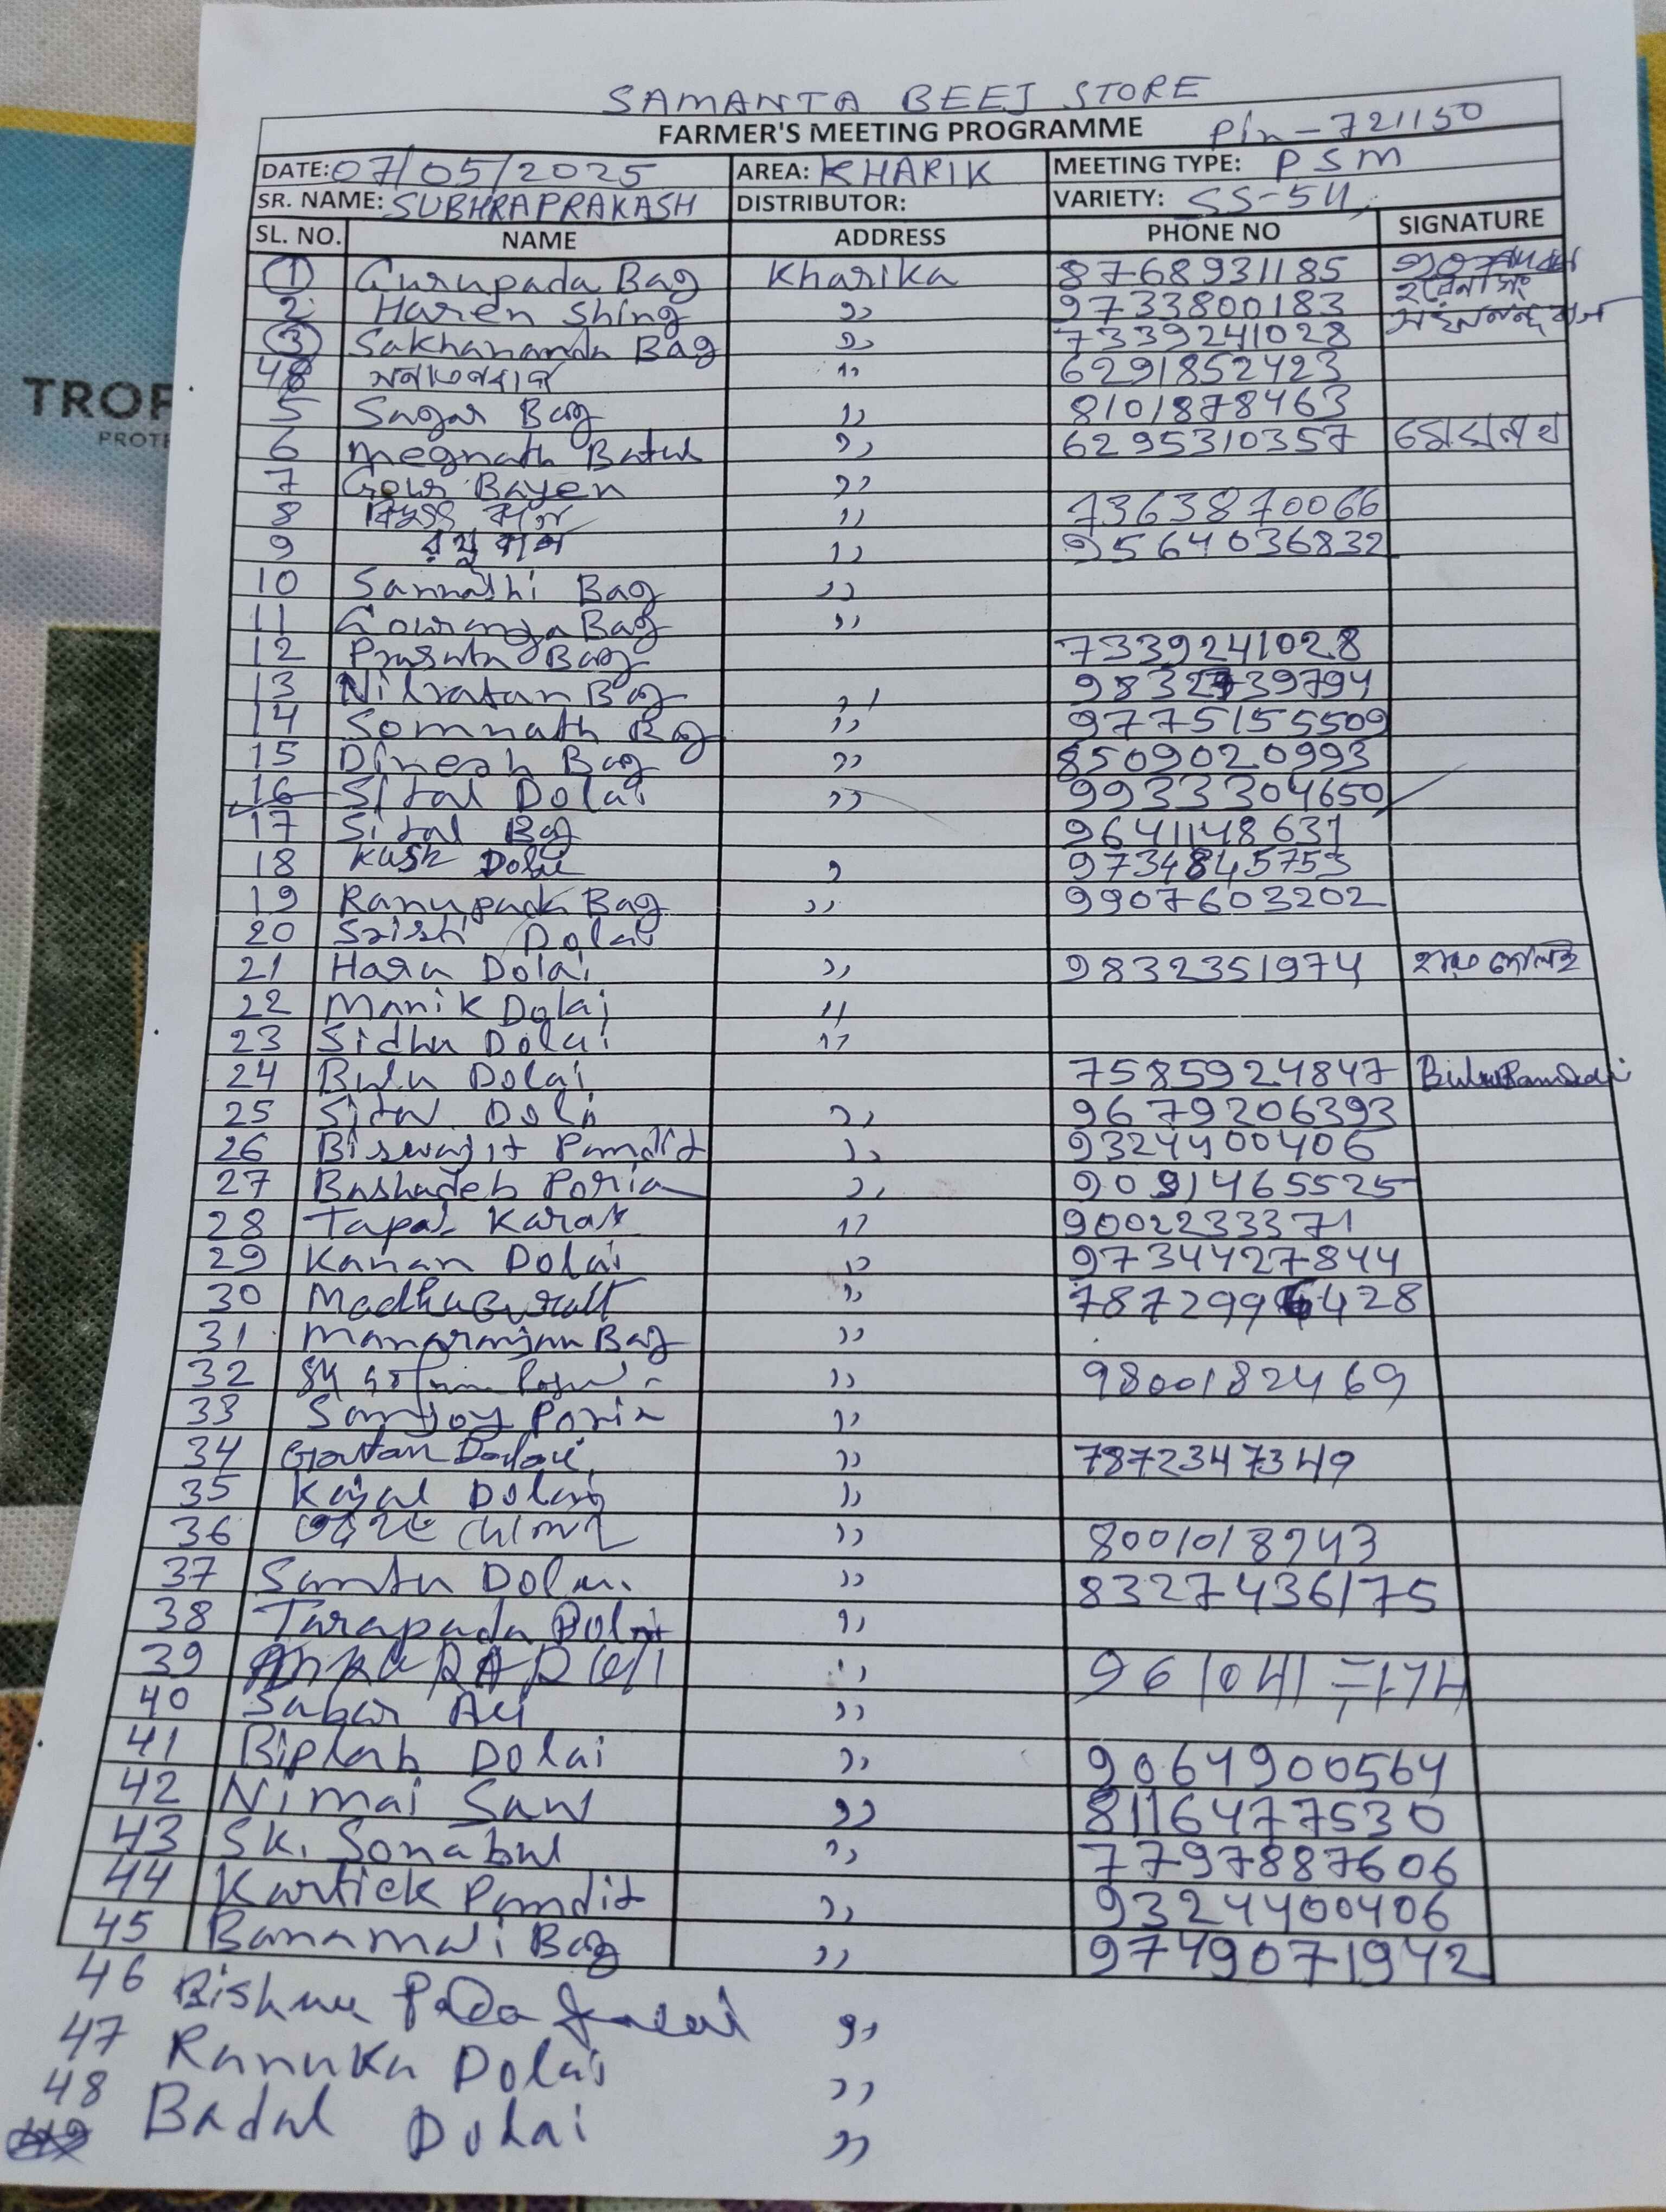 SAMANTA BEEJ STORE
FARMER'S MEETING PROGRAMME Pin-721150
DATE: 07/05/2025 AREA: KHARIK MEETING TYPE: PSM
SR. NAME: SUBHRAPRAKASH DISTRIBUTOR: VARIETY: SS-54,
SL. NO. NAME ADDRESS PHONE NO SIGNATURE
1 Gurupada Bag Kharika 8768931185
2 Haren Shing ,, 9733800183 হরেন সিং
3 Sakhananda Bag ,, 7339241028
4 ,, 6291852423
5 Sagar Bag ,, 8101878463
6 Megnath Batul ,, 6295310357
7 Gour Bayen ,,
8 ,, 7363870066
9 রঘু বাগ ,, 9564036832
10 Sannashi Bag ,,
11 Gouranga Bag ,,
12 Bag 7339241028
13 Nilratan Bag ,, 739794
14 Somnath Bag ,, 97775155509
15 Dinesh Bag ,, 8509020993
16 Sital Dolai ,, 9933304650
17 Sital Bag 9641148631
18 Kush ,, 9734845753
19 Bag ,, 9907603202
20 Dolai
21 Hara Dolai ,, 9832351974
22 Manik Dolai ,,
23 Sidhu Dolai ,,
24 Bulu Dolai 7585924847
25 ,, 9679206393
26 Biswajit Pandit ,, 9324400406
27 Bashadeb Poria ,, 9091465525
28 Tapas Karak ,, 9002233371
29 Kanan Dolai ,, 9734427844
30 ,,
31 Manaranjan Bag ,,
32 ,, 9800182469
33 Sanjoy Poria ,,
34 ,, 7872347349
35 Kajal Dolai ,,
36 ,, 8001018943
37 Santu Dolai ,, 8327436175
38 Tarapada Dolai ,,
39 ,,
40 Sabar Ali ,,
41 Biplab Dolai ,, 9064900564
42 Nimai Saw ,, 8116477530
43 SK. Sonabul ,, 7797887606
44 Kartick Pandit ,, 9324400406
45 Banamali Bag ,, 9749071942
46 Bishnu Pada ,,
47 Ranuka Dolai ,,
48 Badal Dolai ,,
TROP
PROTE